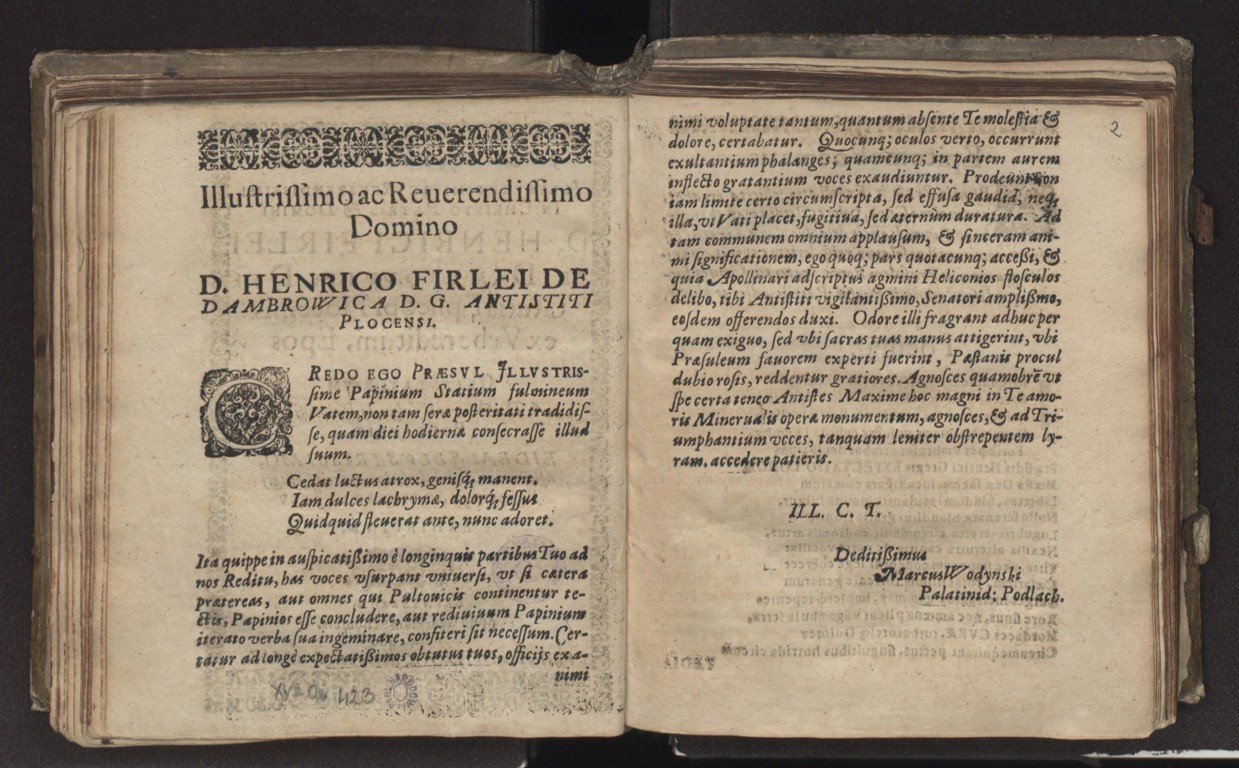 Illustrissimo ac Reuerendissimo
Domino
D. HENRICO FIRLEI DE
DAMBROWICA D. G. ANTISTITI
PLOCENSI.
CREDO EGO PRÆSVL ILLVSTRIS-
sime Papinium Statium fulmineum
Vatem, non tam seræ posteritati tradidis-
se, quam diei hodiernæ consecrasse illud
suum.
Cedat luctus atrox, genisq; manent.
Iam dulces lachrymæ, dolorq; fessus
Quidquid fleuerat ante, nunc adoret.
Ita quippe in auspicatißimo è longinquis partibus Tuo ad
nos Reditu, has voces vsurpant vniuersi, vt si cætera
prætereas, aut omnes qui Pultouicis continentur te-
ctis, Papinios esse concludere, aut rediuiuum Papinium
iterato verba sua ingeminare, confiteri sit necessum. Cer-
tatur ad longè expectatißimos obtutus tuos, officijs ex a-
nimi
XVII. 423
2
nimi voluptate tantum, quantum absente Te molestia &
dolore, certabatur. Quocunq; oculos verto, occurrunt
exultantium phalanges; quamcunq; in partem aurem
inflecto gratantium voces exaudiuntur. Prodeunt non
iam limite certo circumscripta, sed effusa gaudia, neq;
illa, vt Vati placet, fugitiua, sed æternùm duratura. Ad
tam communem omnium applausum, & sinceram ani-
mi significationem, ego quoq; pars quotacunq; acceßi, &
quia Apollinari adscriptus agmini Heliconios flosculos
delibo, tibi Antistiti vigilantißimo, Senatori amplißmo,
eosdem offerendos duxi. Odore illi fragrant adhuc per
quam exiguo, sed vbi sacras tuas manus attigerint, vbi
Præsuleum fauorem experti fuerint, Pæstanis procul
dubio rosis, reddentur gratiores. Agnosces quamobrē vt
spe certa teneo Antistes Maxime hoc magni in Te amo-
ris Mineruālis operæ monumentum, agnosces, & ad Tri-
umphantium voces, tanquam leniter obstrepentem ly-
ram, accedere patieris.
ILL. C. T.
Deditißimus
Marcus Wodynski
Palatinid: Podlach.